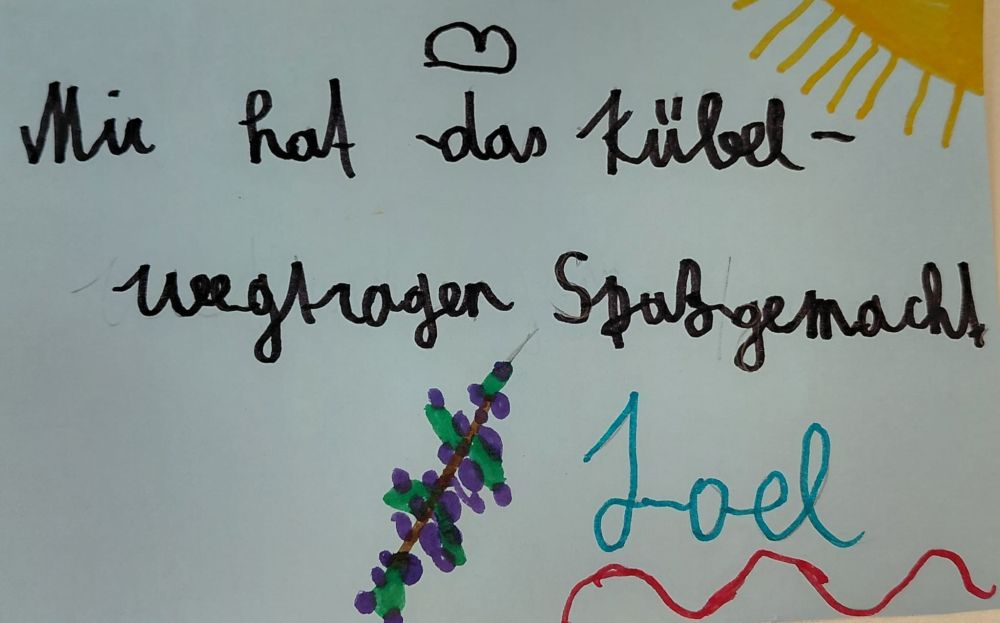 Mir hat das Kübel-
wegtragen Spaß gemacht
Joel